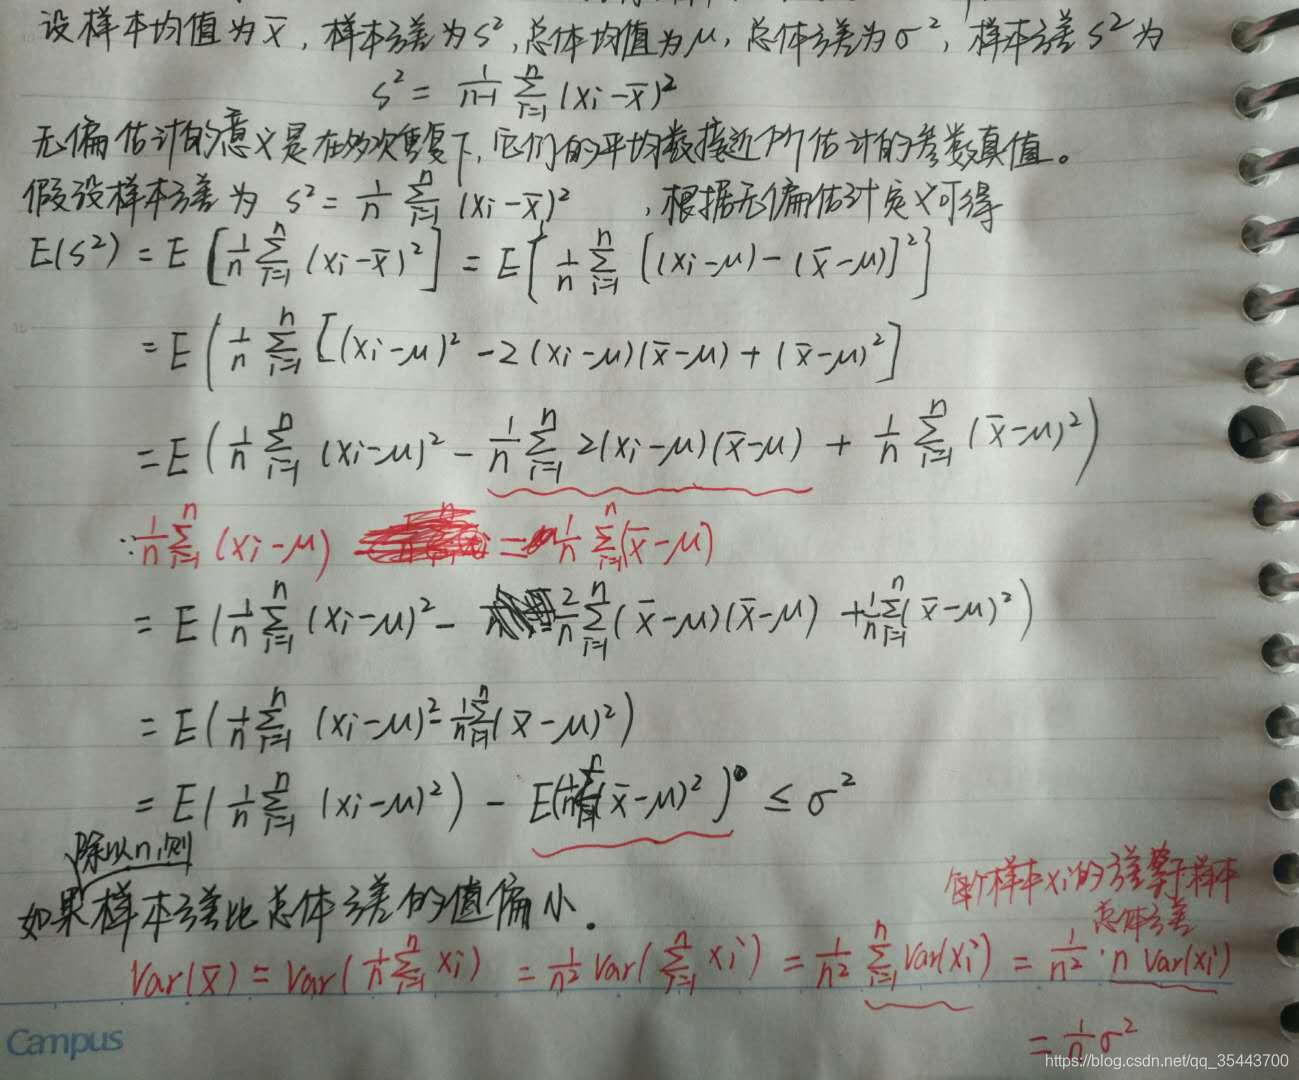 设样本均值为x̄, 样本方差为s², 总体均值为μ, 总体方差为σ², 样本方差s²为
s² = 1/(n-1) Σ_{i=1}^{n} (xi-x̄)²
无偏估计的意义是在多次重复下,它们的平均数接近所估计的参数真值。
假设样本方差为 s² = 1/n Σ_{i=1}^{n} (xi-x̄)² ,根据无偏估计定义可得
E(s²) = E[1/n Σ_{i=1}^{n} (xi-x̄)²] = E{1/n Σ_{i=1}^{n} [(xi-μ)-(x̄-μ)]²}
= E(1/n Σ_{i=1}^{n} [(xi-μ)² -2(xi-μ)(x̄-μ) + (x̄-μ)²]
= E(1/n Σ_{i=1}^{n} (xi-μ)² - 1/n Σ_{i=1}^{n} 2(xi-μ)(x̄-μ) + 1/n Σ_{i=1}^{n} (x̄-μ)²)
∵ 1/n Σ_{i=1}^{n} (xi-μ) = 1/n Σ_{i=1}^{n} (x̄-μ)
= E(1/n Σ_{i=1}^{n} (xi-μ)² - 2/n Σ_{i=1}^{n} (x̄-μ)(x̄-μ) + 1/n Σ_{i=1}^{n} (x̄-μ)²)
= E(1/n Σ_{i=1}^{n} (xi-μ)² - 1/n Σ_{i=1}^{n} (x̄-μ)²)
= E(1/n Σ_{i=1}^{n} (xi-μ)²) - E(1/n Σ_{i=1}^{n} (x̄-μ)²) ≤ σ²
除以n,则
如果样本方差比总体方差的值偏小.
每个样本xi的方差等于样本
总体方差
Var(x̄) = Var(1/n Σ_{i=1}^{n} xi) = 1/n² Var(Σ_{i=1}^{n} xi) = 1/n² Σ_{i=1}^{n} Var(xi) = 1/n² · n Var(xi)
= 1/n σ²
Campus
https://blog.csdn.net/qq_35443700